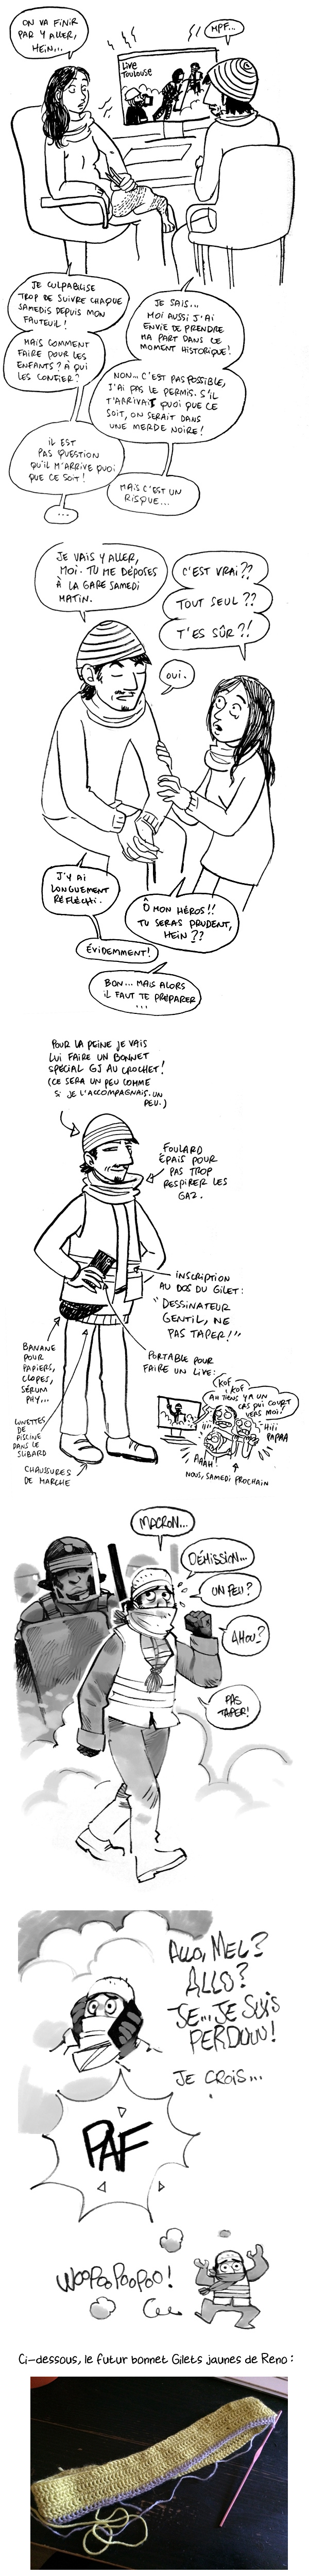 ON VA FINIR
PAR Y ALLER,
HEIN...
MPF...
Live
Toulouse
JE CULPABILISE
TROP DE SUIVRE CHAQUE
SAMEDIS DEPUIS MON
FAUTEUIL !
MAIS COMMENT
FAIRE POUR LES
ENFANTS ? À QUI
LES CONFIER ?
JE SAIS...
MOI AUSSI J'AI
ENVIE DE PRENDRE
MA PART DANS CE
MOMENT HISTORIQUE !
NON... C'EST PAS POSSIBLE,
J'AI PAS LE PERMIS. S'IL
T'ARRIVAIT QUOI QUE CE
SOIT, ON SERAIT DANS
UNE MERDE NOIRE !
IL EST
PAS QUESTION
QU'IL M'ARRIVE QUOI
QUE CE SOIT !
MAIS C'EST UN
RISQUE...
...
JE VAIS Y ALLER,
MOI. TU ME DÉPOSES
À LA GARE SAMEDI
MATIN.
C'EST VRAI ??
TOUT SEUL ??
T'ES SÛR ?!
OUI.
J'Y AI
LONGUEMENT
RÉFLÉCHI.
Ô MON HÉROS !!
TU SERAS PRUDENT,
HEIN ??
ÉVIDEMMENT !
BON... MAIS ALORS
IL FAUT TE PRÉPARER
...
POUR LA PEINE JE VAIS
LUI FAIRE UN BONNET
SPÉCIAL GJ AU CROCHET !
(CE SERA UN PEU COMME
SI JE L'ACCOMPAGNAIS UN
PEU.)
FOULARD
ÉPAIS POUR
PAS TROP
RESPIRER LES
GAZ.
INSCRIPTION
AU DOS DU GILET :
"DESSINATEUR
GENTIL, NE
PAS TAPER !"
PORTABLE POUR
FAIRE UN LIVE :
BANANE
POUR
PAPIERS,
CLOPES,
SÉRUM
PHY...
LUNETTES
DE
PISCINE
DANS LE
SLIBARD
CHAUSSURES
DE MARCHE
KOF
KOF
AH TIENS Y'A UN
CRS QUI COURT
VERS MOI !
HIII
PAPAA
AAAH !
NOUS, SAMEDI PROCHAIN
MACRON...
DÉMISSION...
UN PEU ?
AHOU ?
PAS
TAPER !
ALLO, MEL ?
ALLO ?
JE... JE SUIS
PERDUUU !
JE CROIS...
PAF
WOOPOOPOOPOO !
Ci-dessous, le futur bonnet Gilets jaunes de Reno :